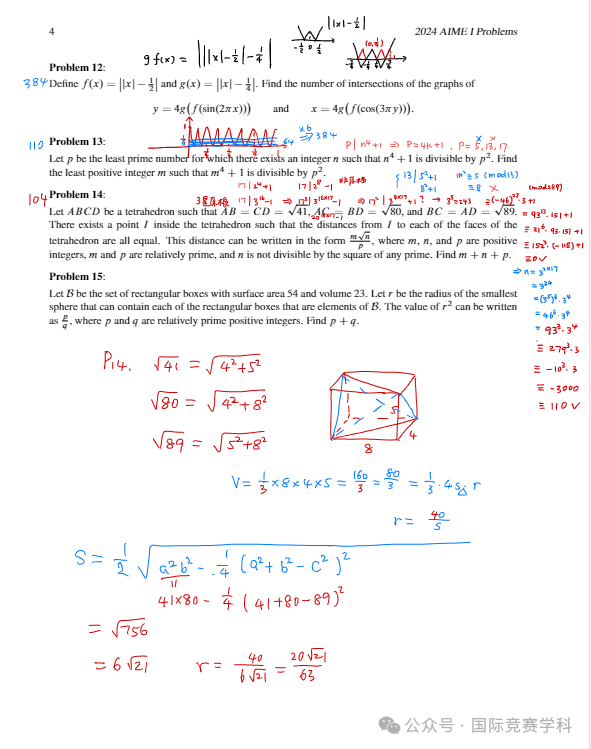 4
2024 AIME I Problems
g f(x) = |||x| - 1/2| - 1/4|
||x| - 1/2|
-1/2 0 1/2
(0, 1/4)
Problem 12:
384
Define f(x) = ||x| − 1/2| and g(x) = ||x| − 1/4|. Find the number of intersections of the graphs of
y = 4g(f(sin(2πx))) and x = 4g(f(cos(3πy))).
64 ×6 ⇒ 384
Problem 13:
110
P | n⁴+1 ⇒ P = 4k+1, P = 5, 13, 17
Let p be the least prime number for which there exists an integer n such that n⁴ + 1 is divisible by p². Find
the least positive integer m such that m⁴ + 1 is divisible by p².
13 | 5²+1 m² ≡ 5 (mod 13)
8²+1 ≡ 8 ×
(mod 289)
17 | 2⁴+1 17 | 2⁸-1
Problem 14:
104
17 | 3¹⁶-1
→ 3⁵ = 243
Let ABCD be a tetrahedron such that AB = CD = √41, AC = BD = √80, and BC = AD = √89.
There exists a point I inside the tetrahedron such that the distances from I to each of the faces of the
tetrahedron are all equal. This distance can be written in the form m√n/p, where m, n, and p are positive
integers, m and p are relatively prime, and n is not divisible by the square of any prime. Find m + n + p.
≡ 0 ✓
= 3³⁴
= 93³·3⁴
≡ 279³·3
≡ -10³·3
≡ -3000
≡ 110 ✓
Problem 15:
Let B be the set of rectangular boxes with surface area 54 and volume 23. Let r be the radius of the smallest
sphere that can contain each of the rectangular boxes that are elements of B. The value of r² can be written
as p/q, where p and q are relatively prime positive integers. Find p + q.
P14. √41 = √(4²+5²)
√80 = √(4²+8²)
√89 = √(5²+8²)
5
4
8
V = 1/3 × 8 × 4 × 5 = 160/3 = 80/3 = 1/3 · 4S△ r
r = 40/S
S = 1/2 √(a²b² - 1/4 (a² + b² - c²)²
41×80 - 1/4 (41+80-89)²
= √756
= 6√21 r = 40/6√21 = 20√21/63
公众号 · 国际竞赛学科